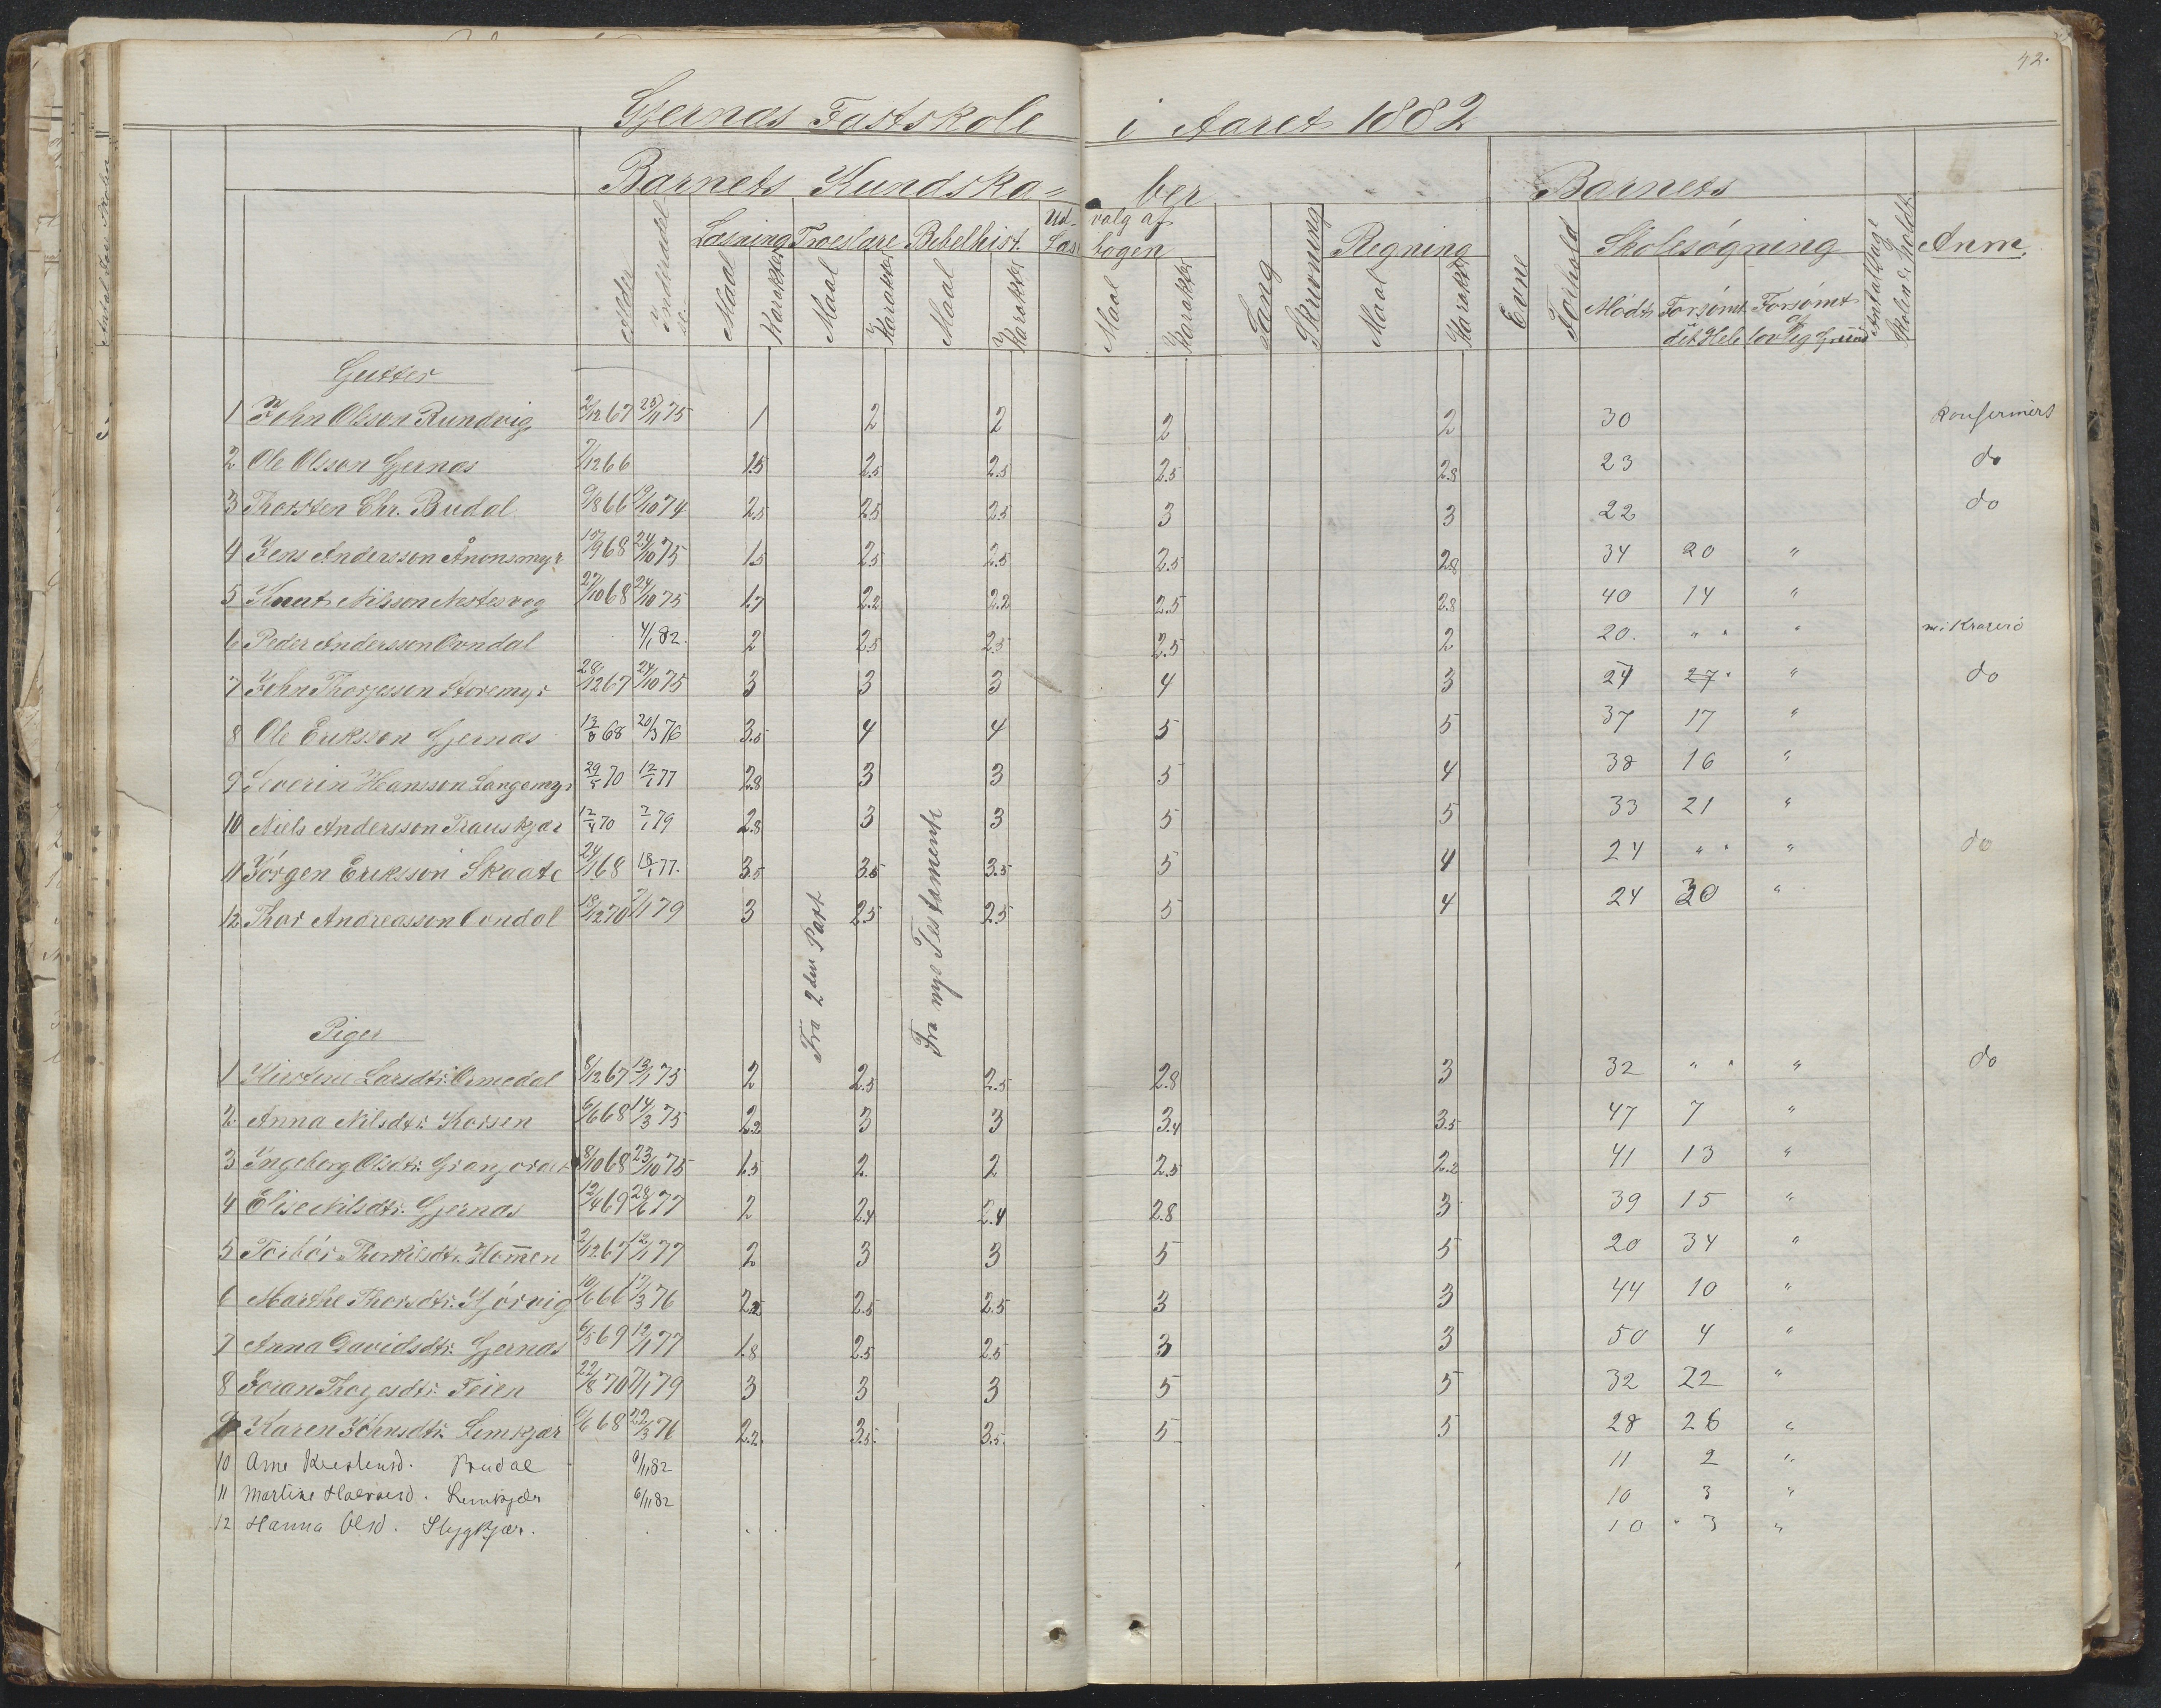 42.
Gjernæs Fastskole i Aaret 1882
Barnets Kundska= ber Barnets
Læsning Troeslære Bibelhist. Ud- valg af Læs bogen Sang Skrivning Regning Evne Forhold Skolesøgning Antal Dage Skolen er holdt Anm.
Alder Maal Karakter Maal Karakter Maal Karakter Maal Karakter Maal Karakter Mødt Forsømt det Hele Forsømt af lovlig Grund
Gutter
1 John Olsson Rundvig 2/12 67 23/11 75 1 2 2 2 2 30 Konfermert
2 Ole Olsson Gjernæs 7/12 66 1.5 2.5 2.5 2.5 2.8 23 do
3 Thorsten Chr. Budal 9/8 66 19/10 74 2.5 2.5 2.5 3 3 22 do
4 Jens Andersson Ånonsmyr 15/9 68 24/10 75 1.5 2.5 2.5 2.5 2.8 34 20 "
5 Knut Nilsson Nestesvog 27/10 68 24/10 75 1.7 2.2 2.2 2.5 2.8 40 14 "
6 Peder Andersson Ovndal 4/1 82. 2 2.5 2.5 2.5 2 20. " " "
7 John Thorjesson Storemyr 28/12 67 24/10 75 3 3 3 4 3 24 27 " do
8 Ole Eriksson Gjernæs 13/8 68 20/3 76 3.5 4 4 5 5 37 17 "
9 Severin Hansson Langemyr 29/5 70 12/1 77 2.8 3 3 5 4 38 16 "
10 Niels Andersson Trauskjær 12/4 70 7/1 79 2.8 3 3 5 5 33 21 "
11 Jörgen Eriksson Skaate 24/1 68 18/1 77. 3.5 3.5 3.5 5 4 24 " " " do
12 Thor Andreasson Ovndal 18/12 70 7/1 79 3 2.5 2.5 5 4 24 30 "
Fra 2den Part
Fra nye Testamente
Piger
1 Kirstene Larsdtr. Ormedal 8/12 67 13/1 75 2 2.5 2.5 2.8 3 32 " " " do
2 Anna Nilsdtr. Korsen 6/6 68 14/3 75 2.2 3 3 3.4 3.5 47 7 "
3 Ingeberg Olsdtr. 8/10 68 23/10 75 1.5 2. 2 2.5 2.2 41 13 "
4 Elise Nilsdtr. Gjernæs 12/4 69 28/6 77 2 2.4 2.4 2.8 3 39 15 "
5 Torbór Therkilsdtr. Hom̅en 2/12 67 12/1 77 2 3 3 5 5 20 34 "
6 Marthe Thorsdtr. Kjörvig 10/6 66 17/3 76 2.2 2.5 2.5 3 3 44 10 "
7 Anna Davidsdtr. Gjernæs 6/5 69 12/1 77 1.8 2.5 2.5 3 3 50 4 "
8 Joran Thorjesdtr. Feien 22/8 70 7/1 79 3 3 3 5 5 32 22 "
9 Karen Johnsdtr. Limkjær 6/6 68 22/3 76 2.2. 3.5. 3.5. 5 5 28 26 "
10 Ane Kirstensd. Budal 9/11 82 11 2 "
11 Martine Halvorsd. Limkjær 6/11 82 10 3 "
12 Hanna Olsd. Styggkjær. 10 3 "